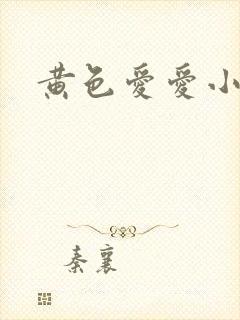 黄色愛愛小
秦襄